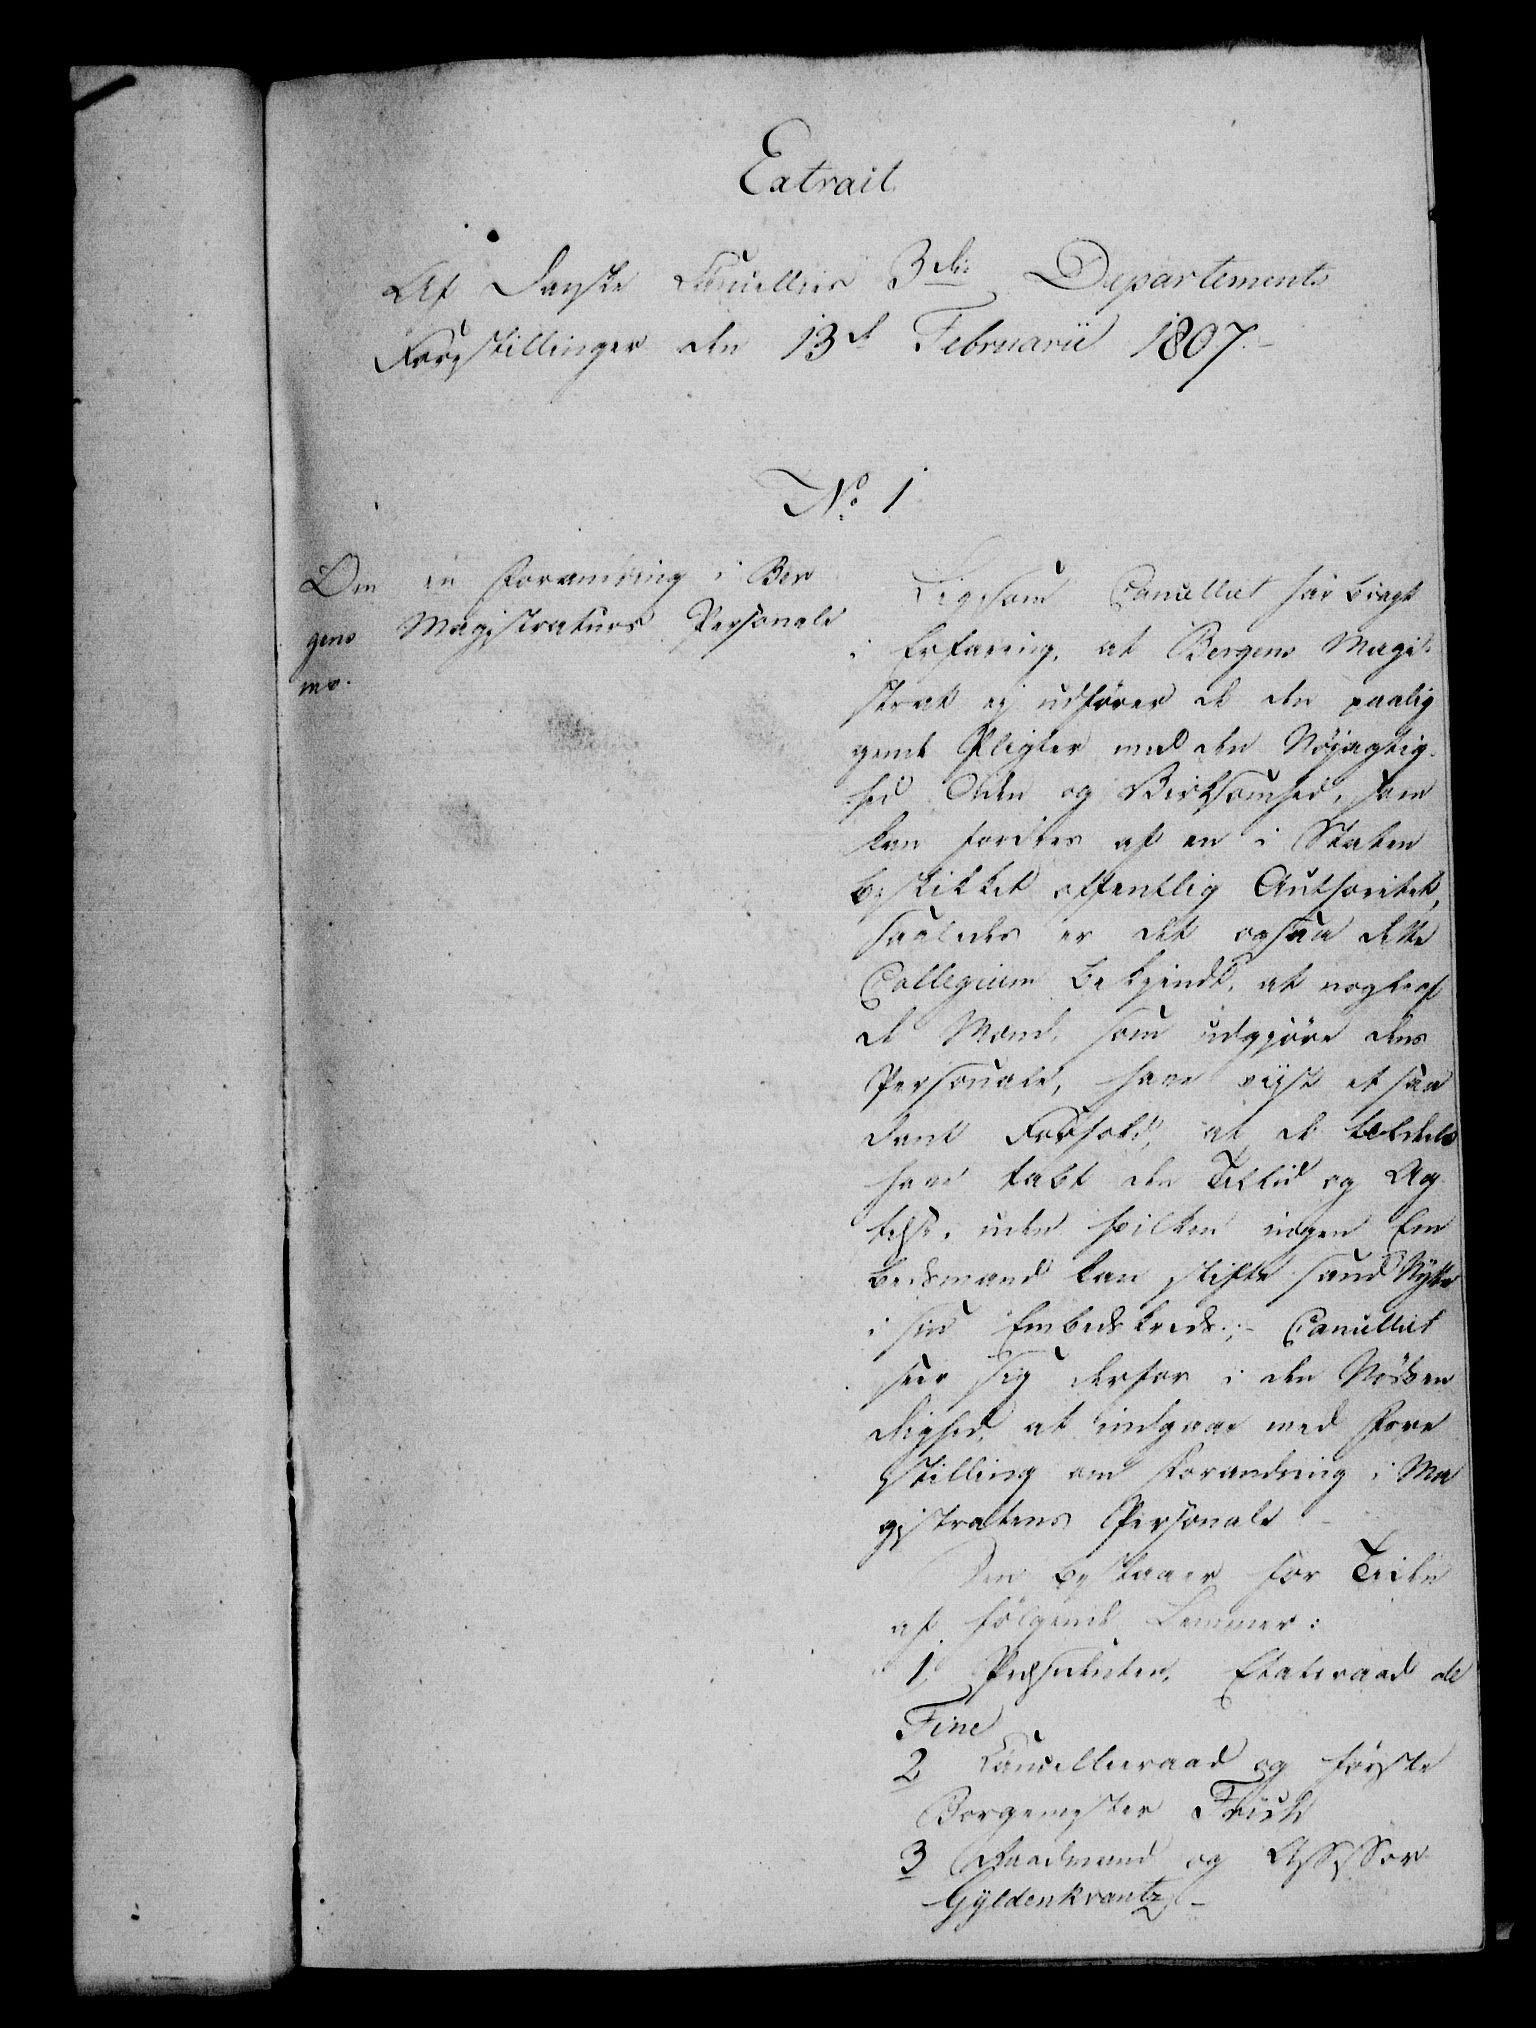 Extrait
Af Danske Cancellies 3die Departements
Forestillinger den 13d Februarii 1807.
No 1
Om en Forandring i Ber
gens Magistraturs Personale
mv.
Ligesom Cancelliet har bragt
i Erfaring, at Bergens Magi-
strat ej udfører de den paalig
gende Pligter med den Nøjagtig-
hed Orden og Virksomhed, som
kan fordres af en i Staten
beskikket offentlig Authoritet,
saaledes er det ogsaa dette
Collegium bekjendt, at nogle af
de Mænd, som udgjöre dens
Personale, have viist et saa
dant Forhold, at de
have tabt den Tillid og Ag
telse, uden hvilken ingen Em
bedsmand kan stifte sand Nytte
i sin Embedskreds; - Cancelliet
seer sig derfor i den Nödven
dighed, at indgaae med Fore
stilling om Forandring i Ma
gistratens Personale
Den bestaaer for Tiden
af følgende Lemmer:
1, Præsidenten, Etatsraad de
Fine
2 Cancellieraad og første
Borgemester Frich
3 Raadmand og Assessor
Gyldenkrantz -